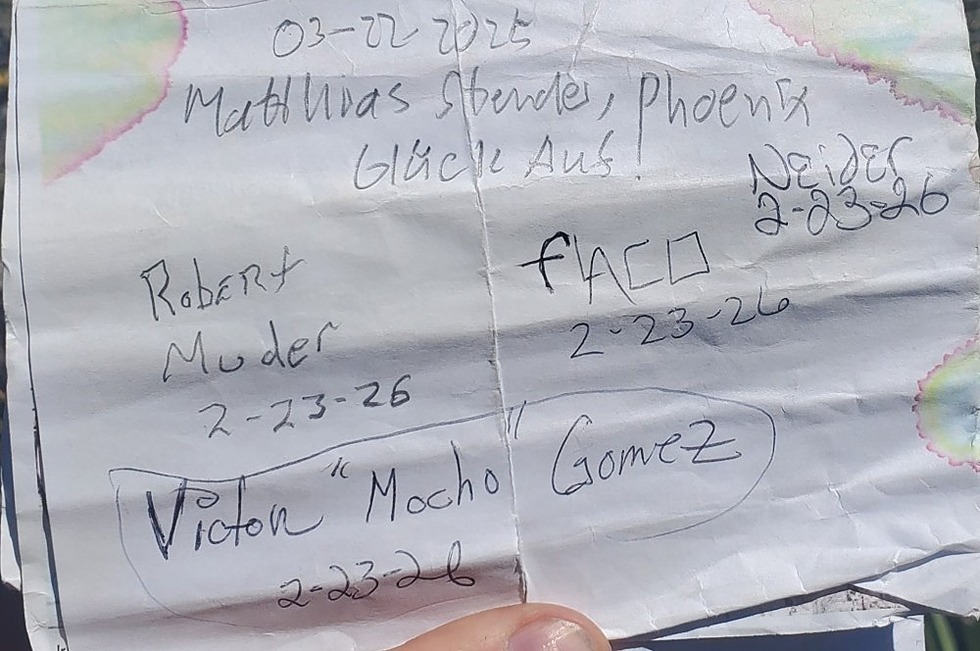 03-22 2025
Matthias Stende, Phoenix
Glück Auf!
Neider
2-23-26
flaco
2-23-26
Robert
Muder
2-23-26
Victor "Mocho" Gomez
2-23-26